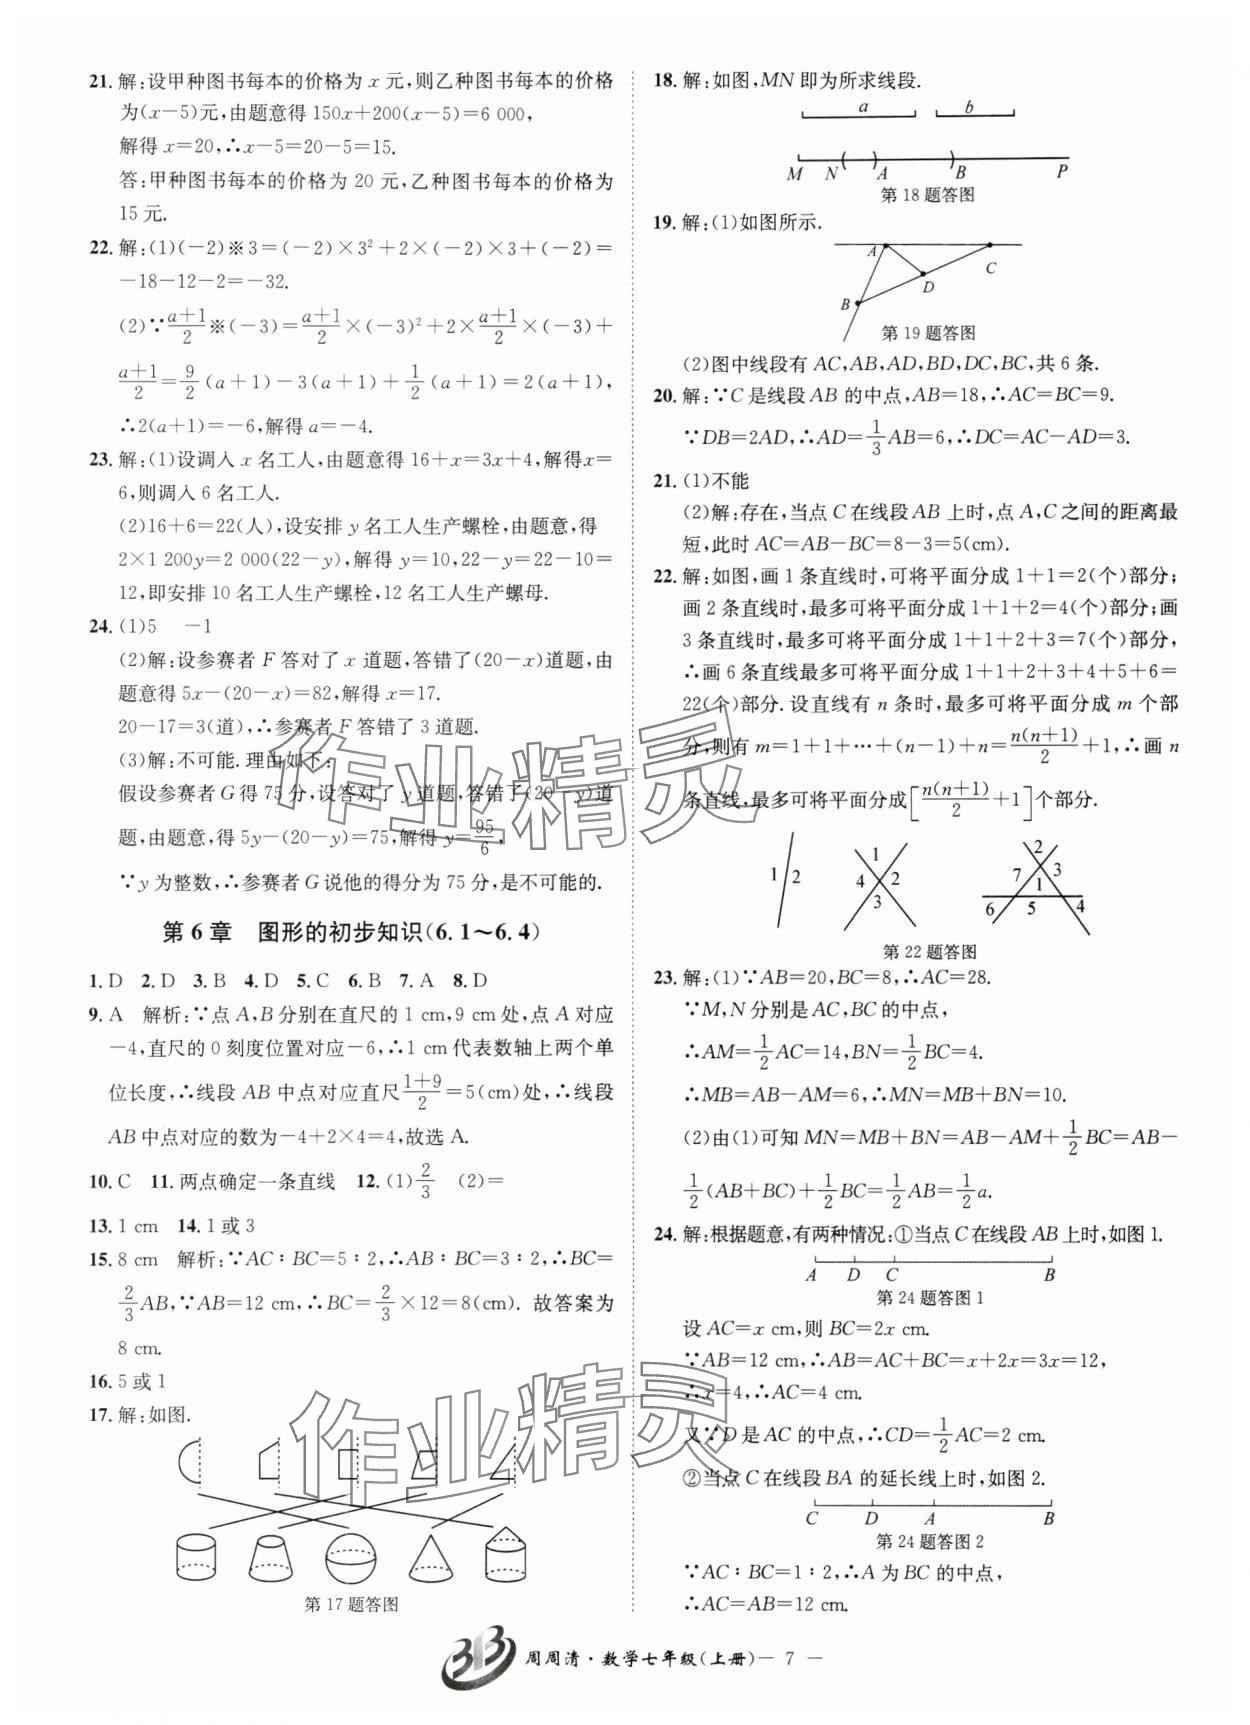 21. 解:设甲种图书每本的价格为 x 元,则乙种图书每本的价格
为(x−5)元,由题意得 150x+200(x−5)=6 000,
解得 x=20,∴x−5=20−5=15.
答:甲种图书每本的价格为 20 元,乙种图书每本的价格为
15 元.
22. 解:(1)(−2)※3=(−2)×3²+2×(−2)×3+(−2)=
−18−12−2=−32.
(2)∵(a+1)/2※(−3)=(a+1)/2×(−3)²+2×(a+1)/2×(−3)+
(a+1)/2=9/2(a+1)−3(a+1)+1/2(a+1)=2(a+1),
∴2(a+1)=−6,解得 a=−4.
23. 解:(1)设调入 x 名工人,由题意得 16+x=3x+4,解得x=
6,则调入 6 名工人.
(2)16+6=22(人),设安排 y 名工人生产螺栓,由题意,得
2×1 200y=2 000(22−y),解得 y=10,22−y=22−10=
12,即安排 10 名工人生产螺栓,12 名工人生产螺母.
24. (1)5 −1
(2)解:设参赛者 F 答对了 x 道题,答错了(20−x)道题,由
题意得 5x−(20−x)=82,解得 x=17.
20−17=3(道),∴参赛者 F 答错了 3 道题.
(3)解:不可能. 理由如下:
假设参赛者 G 得 75 分,设答对了 y 道题,答错了(20−y)道
题,由题意,得 5y−(20−y)=75,解得 y=95/6,
∵y 为整数,∴参赛者 G 说他的得分为 75 分,是不可能的.
第 6 章 图形的初步知识(6.1～6.4)
1. D 2. D 3. B 4. D 5. C 6. B 7. A 8. D
9. A 解析:∵点 A,B 分别在直尺的 1 cm,9 cm 处,点 A 对应
−4,直尺的 0 刻度位置对应−6,∴1 cm 代表数轴上两个单
位长度,∴线段 AB 中点对应直尺(1+9)/2=5(cm)处,∴线段
AB 中点对应的数为−4+2×4=4,故选 A.
10. C 11. 两点确定一条直线 12. (1)2/3 (2)=
13. 1 cm 14. 1 或 3
15. 8 cm 解析:∵AC∶BC=5∶2,∴AB∶BC=3∶2,∴BC=
2/3AB,∵AB=12 cm,∴BC=2/3×12=8(cm). 故答案为
8 cm.
16. 5 或 1
17. 解:如图.
第 17 题答图
18. 解:如图,MN 即为所求线段.
a b
M N A B P
第 18 题答图
19. 解:(1)如图所示.
A C
D
B
第 19 题答图
(2)图中线段有 AC,AB,AD,BD,DC,BC,共 6 条.
20. 解:∵C 是线段 AB 的中点,AB=18,∴AC=BC=9.
∵DB=2AD,∴AD=1/3AB=6,∴DC=AC−AD=3.
21. (1)不能
(2)解:存在,当点 C 在线段 AB 上时,点 A,C 之间的距离最
短,此时 AC=AB−BC=8−3=5(cm).
22. 解:如图,画 1 条直线时,可将平面分成 1+1=2(个)部分;
画 2 条直线时,最多可将平面分成 1+1+2=4(个)部分;画
3 条直线时,最多可将平面分成 1+1+2+3=7(个)部分,
∴画 6 条直线最多可将平面分成 1+1+2+3+4+5+6=
22(个)部分. 设直线有 n 条时,最多可将平面分成 m 个部
分,则有 m=1+1+…+(n−1)+n=n(n+1)/2+1,∴画 n
条直线,最多可将平面分成[n(n+1)/2+1]个部分.
1 2
1 2 3 4
1 2 3 4 5 6 7
第 22 题答图
23. 解:(1)∵AB=20,BC=8,∴AC=28.
∵M,N 分别是 AC,BC 的中点,
∴AM=1/2AC=14,BN=1/2BC=4.
∴MB=AB−AM=6,∴MN=MB+BN=10.
(2)由(1)可知 MN=MB+BN=AB−AM+1/2BC=AB−
1/2(AB+BC)+1/2BC=1/2AB=1/2a.
24. 解:根据题意,有两种情况:①当点 C 在线段 AB 上时,如图 1.
A D C B
第 24 题答图 1
设 AC=x cm,则 BC=2x cm.
∵AB=12 cm,∴AB=AC+BC=x+2x=3x=12,
∴x=4,∴AC=4 cm.
又∵D 是 AC 的中点,∴CD=1/2AC=2 cm.
②当点 C 在线段 BA 的延长线上时,如图 2.
C D A B
第 24 题答图 2
∵AC∶BC=1∶2,∴A 为 BC 的中点,
∴AC=AB=12 cm.
作业精灵
作业精灵
周周清·数学七年级(上册)— 7 —